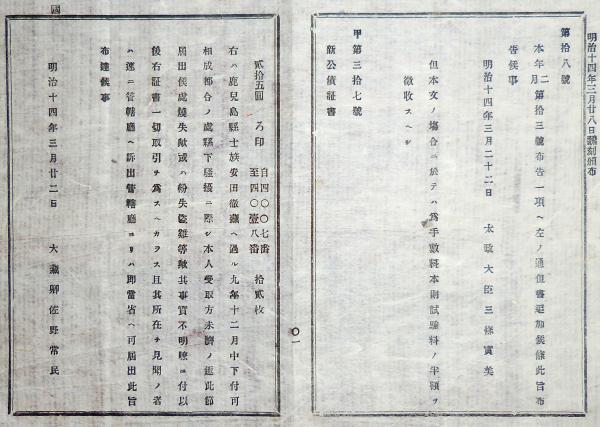 明治十四年三月廿八日飜刻頒布
第拾八號
本年二月第拾三號布告一項ヘ左ノ通但書追加候條此旨布
告候事
明治十四年三月二十二日 太政大臣三條實美
但本文ノ塲合ニ於テハ爲手數料本則試驗料ノ半額ヲ
徵收スヘシ
甲第三拾七號
新公債証書
貳拾五圓 ろ印 自四〇〇七番 至四〇壹八番 拾貳枚
右ハ鹿兒島縣士族安田 ヘ過ル九年十二月中下付可
相成都合ノ處縣下騷擾ニ際シ本人受取方未濟ノ趣此節
届出候處燒失歟或ハ紛失盜難等歟其事實不明瞭ニ付以
後右証書一切取引ヲ爲スヘカラス且其所在ヲ見聞ノ者
ハ速ニ管轄廳ヘ訴出管轄廳ヨリハ即當省ヘ可届出此旨
布達候事
明治十四年三月廿二日 大藏卿佐野常民
〇一
國